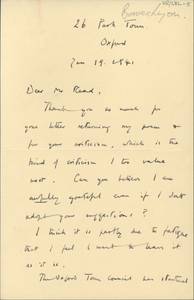 26 Park Town
Oxford
Jan 19. 1941
Dear Mr Read,
Thank you so much for
your letter returning my poem &
for your criticism, which is the
kind of criticism I too value
most. Can you believe I am
awfully grateful even if I don't
adopt your suggestions?
I think it is partly due to fatigue
that I feel I want to leave it
as it is.
The Oxford Town Council has